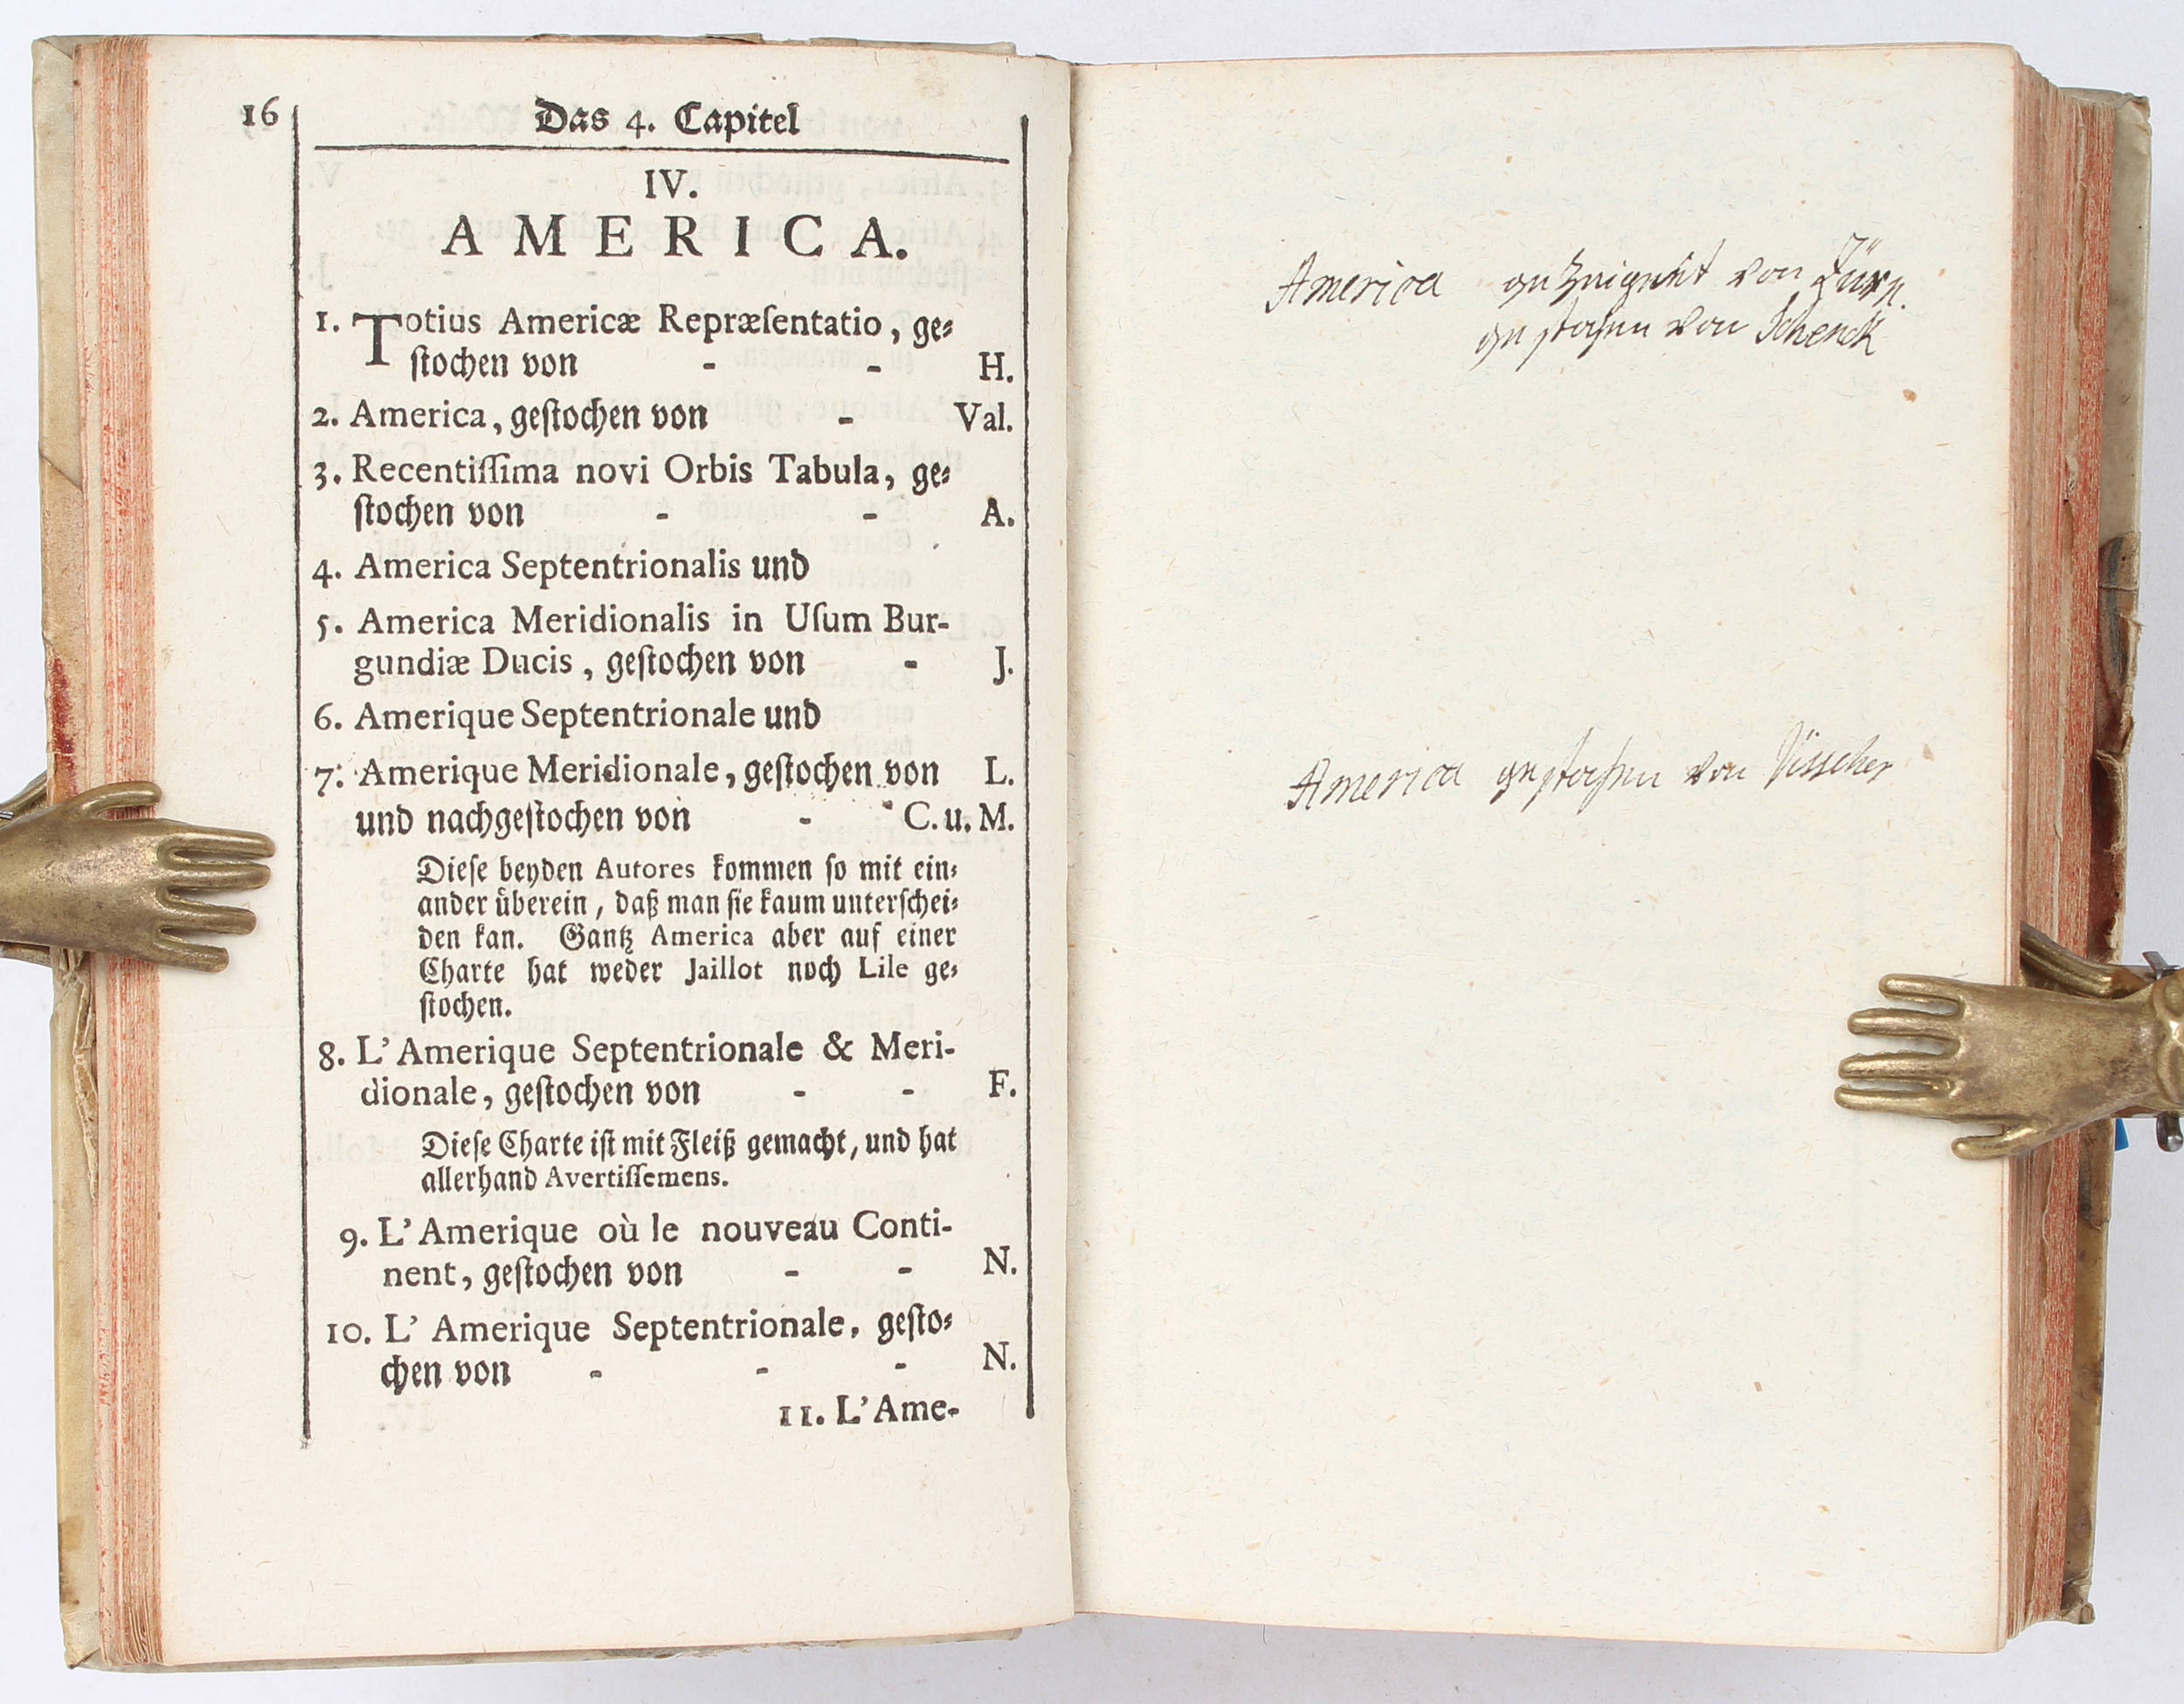 16
Das 4. Capitel
IV.
AMERICA.
1. Totius Americæ Repræſentatio, ge⸗
ſtochen von - - H.
2. America, geſtochen von - Val.
3. Recentiſſima novi Orbis Tabula, ge⸗
ſtochen von - - A.
4. America Septentrionalis und
5. America Meridionalis in Uſum Bur-
gundiæ Ducis, geſtochen von - J.
6. Amerique Septentrionale und
7. Amerique Meridionale, geſtochen von L.
und nachgeſtochen von - C. u. M.
Dieſe beyden Autores kommen ſo mit ein⸗
ander überein, daß man ſie kaum unterſchei⸗
den kan. Gantz America aber auf einer
Charte hat weder Jaillot noch Lile ge⸗
ſtochen.
8. L'Amerique Septentrionale & Meri-
dionale, geſtochen von - - F.
Dieſe Charte iſt mit Fleiß gemacht, und hat
allerhand Avertiſſemens.
9. L'Amerique où le nouveau Conti-
nent, geſtochen von - - N.
10. L' Amerique Septentrionale, geſto⸗
chen von - - - N.
11. L'Ame-
America gezeignet von Zürn.
gestochen von Schenck
America gestochen von Visscher